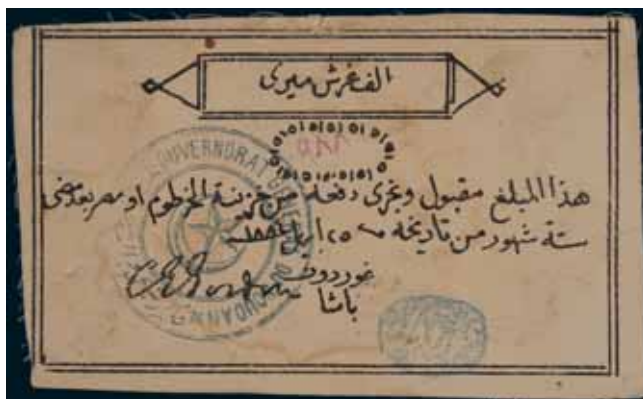 الف غرش ميرى
هذا المبلغ مقبول وتجرى دفعه من خزينة الخرطوم او مصر بعد مضى
ستة شهور من تاريخه ٢٥ ابريل ١٨٨٤
غوردون
باشا
GOUVERNORAT GENERAL
SOUDAN